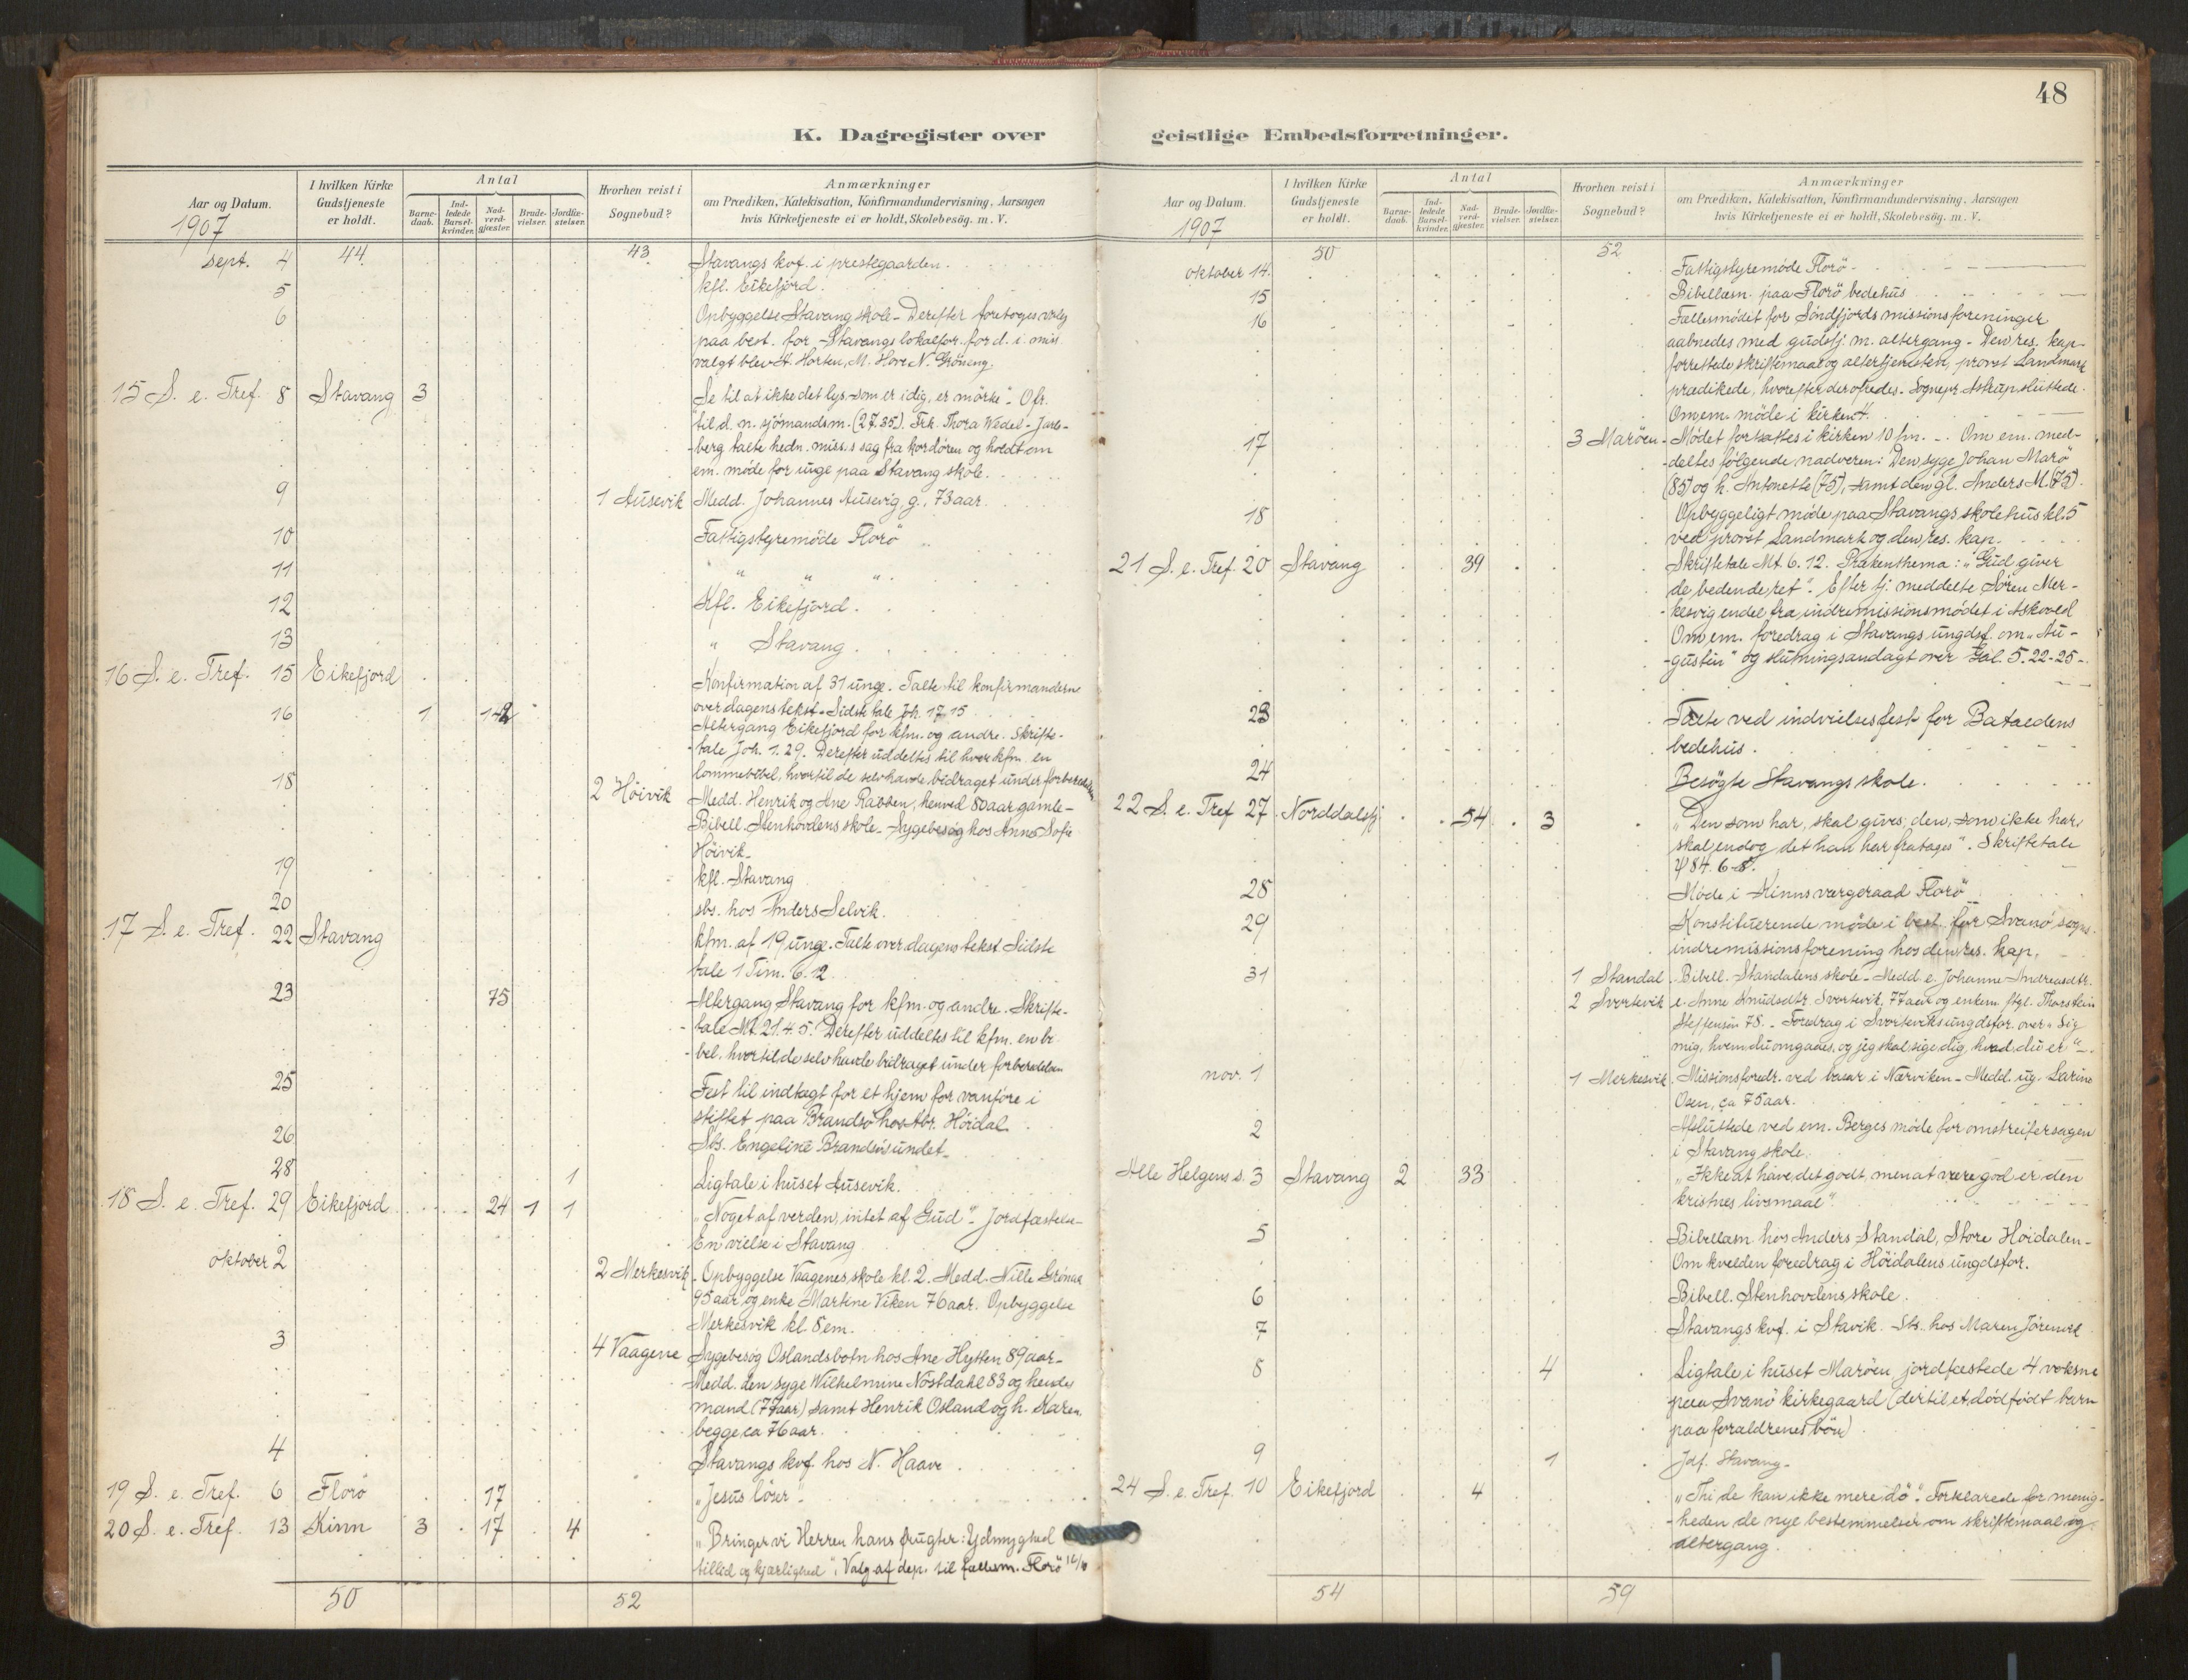 48
K. Dagregister over
Aar og Datum.
1907
I hvilken Kirke Gudstjeneste er holdt.
Antal
Barnedaab.
Indledede Barselkvinder.
Nadverdgjæster.
Brudevielser.
Jordfæstelser.
Hvorhen reist i Sognebud?
Anmærkninger
om Prædiken, Katekisation, Konfirmandundervisning, Aarsagen
hvis Kirketjeneste ei er holdt, Skolebesög. m. V.
44 43
Sept. 4 Stavangs kvf. i prestegaarden.
5 kfl. Eikefjord.
6 Opbyggelse Stavang skole - Derefter foretoges valg
paa best. for Stavangs lokalfor. for d. i. miss.
valgt blev H. Horten, M. Hove N. Gröneng.
15 S. e. Tref. 8 Stavang 3 Se til at ikke det lys, som er i dig, er mörke". Ofr.
til d. n. sjömandsm. (27.35). Frk. Thora Wedel-Jarls-
-berg talte hedn. miss.s sag fra kordören og holdt om
em. möde for unge paa Stavang skole.
9 1 Ausevik Medd. Johannes Ausevig, g., 73 aar.
10 Fattigstyremöde Florö
11 " " "
12 Kfl. Eikefjord.
13 " Stavang.
16 S. e. Tref. 15 Eikefjord Konfirmation af 31 unge. Talte til konfirmanderne
over dagens tekst. Sidste tale Joh. 17.15
16 1 142 Altergang Eikefjord for kfm. og andre. Skrifte-
-tale Joh. 1.29. Derefter uddeltes til hver kfm. en
lommebibel, hvortil de selv havde bidraget under forberedelsen
18 2 Höivik Medd. Henrik og Ane Rabben, henved 80 aar gamle -
Bibell. Stenhovdens skole - Sygebesög hos Anne Sofie
Höivik -
19 kfl. Stavang
20 sbs. hos Anders Selvik.
17 S. e. Tref. 22 Stavang kfm. af 19 unge. Talte over dagens tekst. Sidste
tale 1 Tim. 6.12
23 75 Altergang Stavang for kfm. og andre. Skrifte-
-tale Mt. 21.4.5. Derefter uddeltes til kfm. en bi-
-bel, hvortil de selv havde bidraget under forberedelsen
25 Fest til indtægt for et hjem for vanföre i
stiftet paa Brandsö hos Abr. Höidal
26 Sbs. Engeline Brandsösundet -
28 1 Ligtale i huset Ausevik.
18 S. e. Tref. 29 Eikefjord 24 1 1 "Noget af verden, intet af Gud" - Jordfæstelse -
En vielse i Stavang
oktober 2 2 Merkesvik Opbyggelse Vaagenes skole kl. 2. Medd. Nille Grönaa
95 aar, og enke Martine Viken 76 aar. Opbyggelse
Merkesvik kl. 8 em.
3 4 Vaagene Sygebesög Oslandsbotn hos Ane Hytten 89 aar -
Medd. den syge Wilhelmine Nöstdahl 83 og hendes
mand (77 aar) samt Henrik Osland og h. Karen,
begge ca 76 aar.
4 Stavangs kvf. hos N. Haave.
19 S. e. Tref. 6 Florö 17 "Jesus löser".
20 S. e. Tref. 13 Kinn 3 17 4 "Bringer vi Herren hans frugter: Ydmyghed
tillid og kjærlighed". Valg af dep. til fællesm. Florö 16/10
50 52
geistlige Embedsforretninger.
Aar og Datum.
1907
I hvilken Kirke Gudstjeneste er holdt.
Antal
Barnedaab.
Indledede Barselkvinder.
Nadverdgjæster.
Brudevielser.
Jordfæstelser.
Hvorhen reist i Sognebud?
Anmærkninger
om Prædiken, Katekisation, Konfirmandundervisning, Aarsagen
hvis Kirketjeneste ei er holdt, Skolebesög. m. V.
50 52
oktober 14. Fattigstyremöde Florö -
15 Bibellæsn. paa Florö bedehus
16 Fællesmödet for Söndfjords missionsforeninger
aabnedes med gudstj. m. altergang - Den res. kap.
forrettede skriftemaal og altertjenesten, provst Landmark
prædikede, hvorefter der ofredes. Sognepr. Astrup sluttede.
Om em. möde i kirken.
17 3 Maröen - Mödet fortsattes i kirken 10 fm. - Om em. med-
-deltes fölgende nadveren: Den syge Johan Marö
(85) og h. Antonette (75), samt den gl. Anders M. (75).
18 Opbyggeligt möde paa Stavangs skolehus kl. 5
ved provst Landmark og den res. kap.
21 S. e. Tref. 20 Stavang 39 Skriftetale Mt. 6.12. Prækenthema: "Gud giver
de bedende ret". Efter tj. meddelte Sören Mer-
-kesvig endel fra indremissionsmödet i Askvoll
Om em. foredrag i Stavangs ungdsf. om "Au-
-gustin" og slutningsandagt over Gal. 5.22-25 -
23 Talte ved indvielsesfest for Bataldens
bedehus.
24 Besögte Stavangs skole.
22 S. e. Tref 27 Norddalsfj. 54 3 "Den som har, skal gives; den, som ikke har,
skal endog det han har fratages". Skriftetale
ψ 84. 6-8.
28 Möde i Kinns værgeraad Florö
29 Konstituerende möde i best. for Svanö sogns
indremissionsforening hos den res. kap.
31 1 Standal Bibell. Standalens skole - Medd. e. Johanne Andreasdtr.
2 Svortevik e. Anne Knudsdtr. Svortevik, 77 aar og enkem. ftgl. Thorstein
Steffensen 78. - Foredrag i Svorteviks ungdsfor. over "Sig
mig, hvem du omgaaes, og jeg skal sige dig, hvad du er" -
nov. 1 1 Merkesvik Missionsforedr. ved basar i Nærviken - Medd. ug. Larine
Osen, ca 75 aar.
2 Afsluttede ved em. Berges möde for omstreifersagen
i Stavang skole.
Alle Helgens s. 3 Stavang 2 33 "Ikke at have det godt, men at være god er den
kristnes livsmaal".
5 Bibellæsn. hos Anders Standal, Store Höidalen -
Om kvelden foredrag i Höidalens ungdsfor.
6 Bibell. Stenhovdens skole.
7 Stavangs kvf. i Stavik. Sbs. hos Maren
8 4 Ligtale i huset Maröen, jordfæstede 4 voksne
paa Svanö kirkegaard (dertil et dödfödt barn
paa forældrenes bön)
9 1 Jdf. Stavang -
24 S. e. Tref. 10 Eikefjord 4 "Thi de kan ikke mere dö". Forklarede for menig-
-heden de nye bestemmelser om skriftemaal og
altergang.
54 59